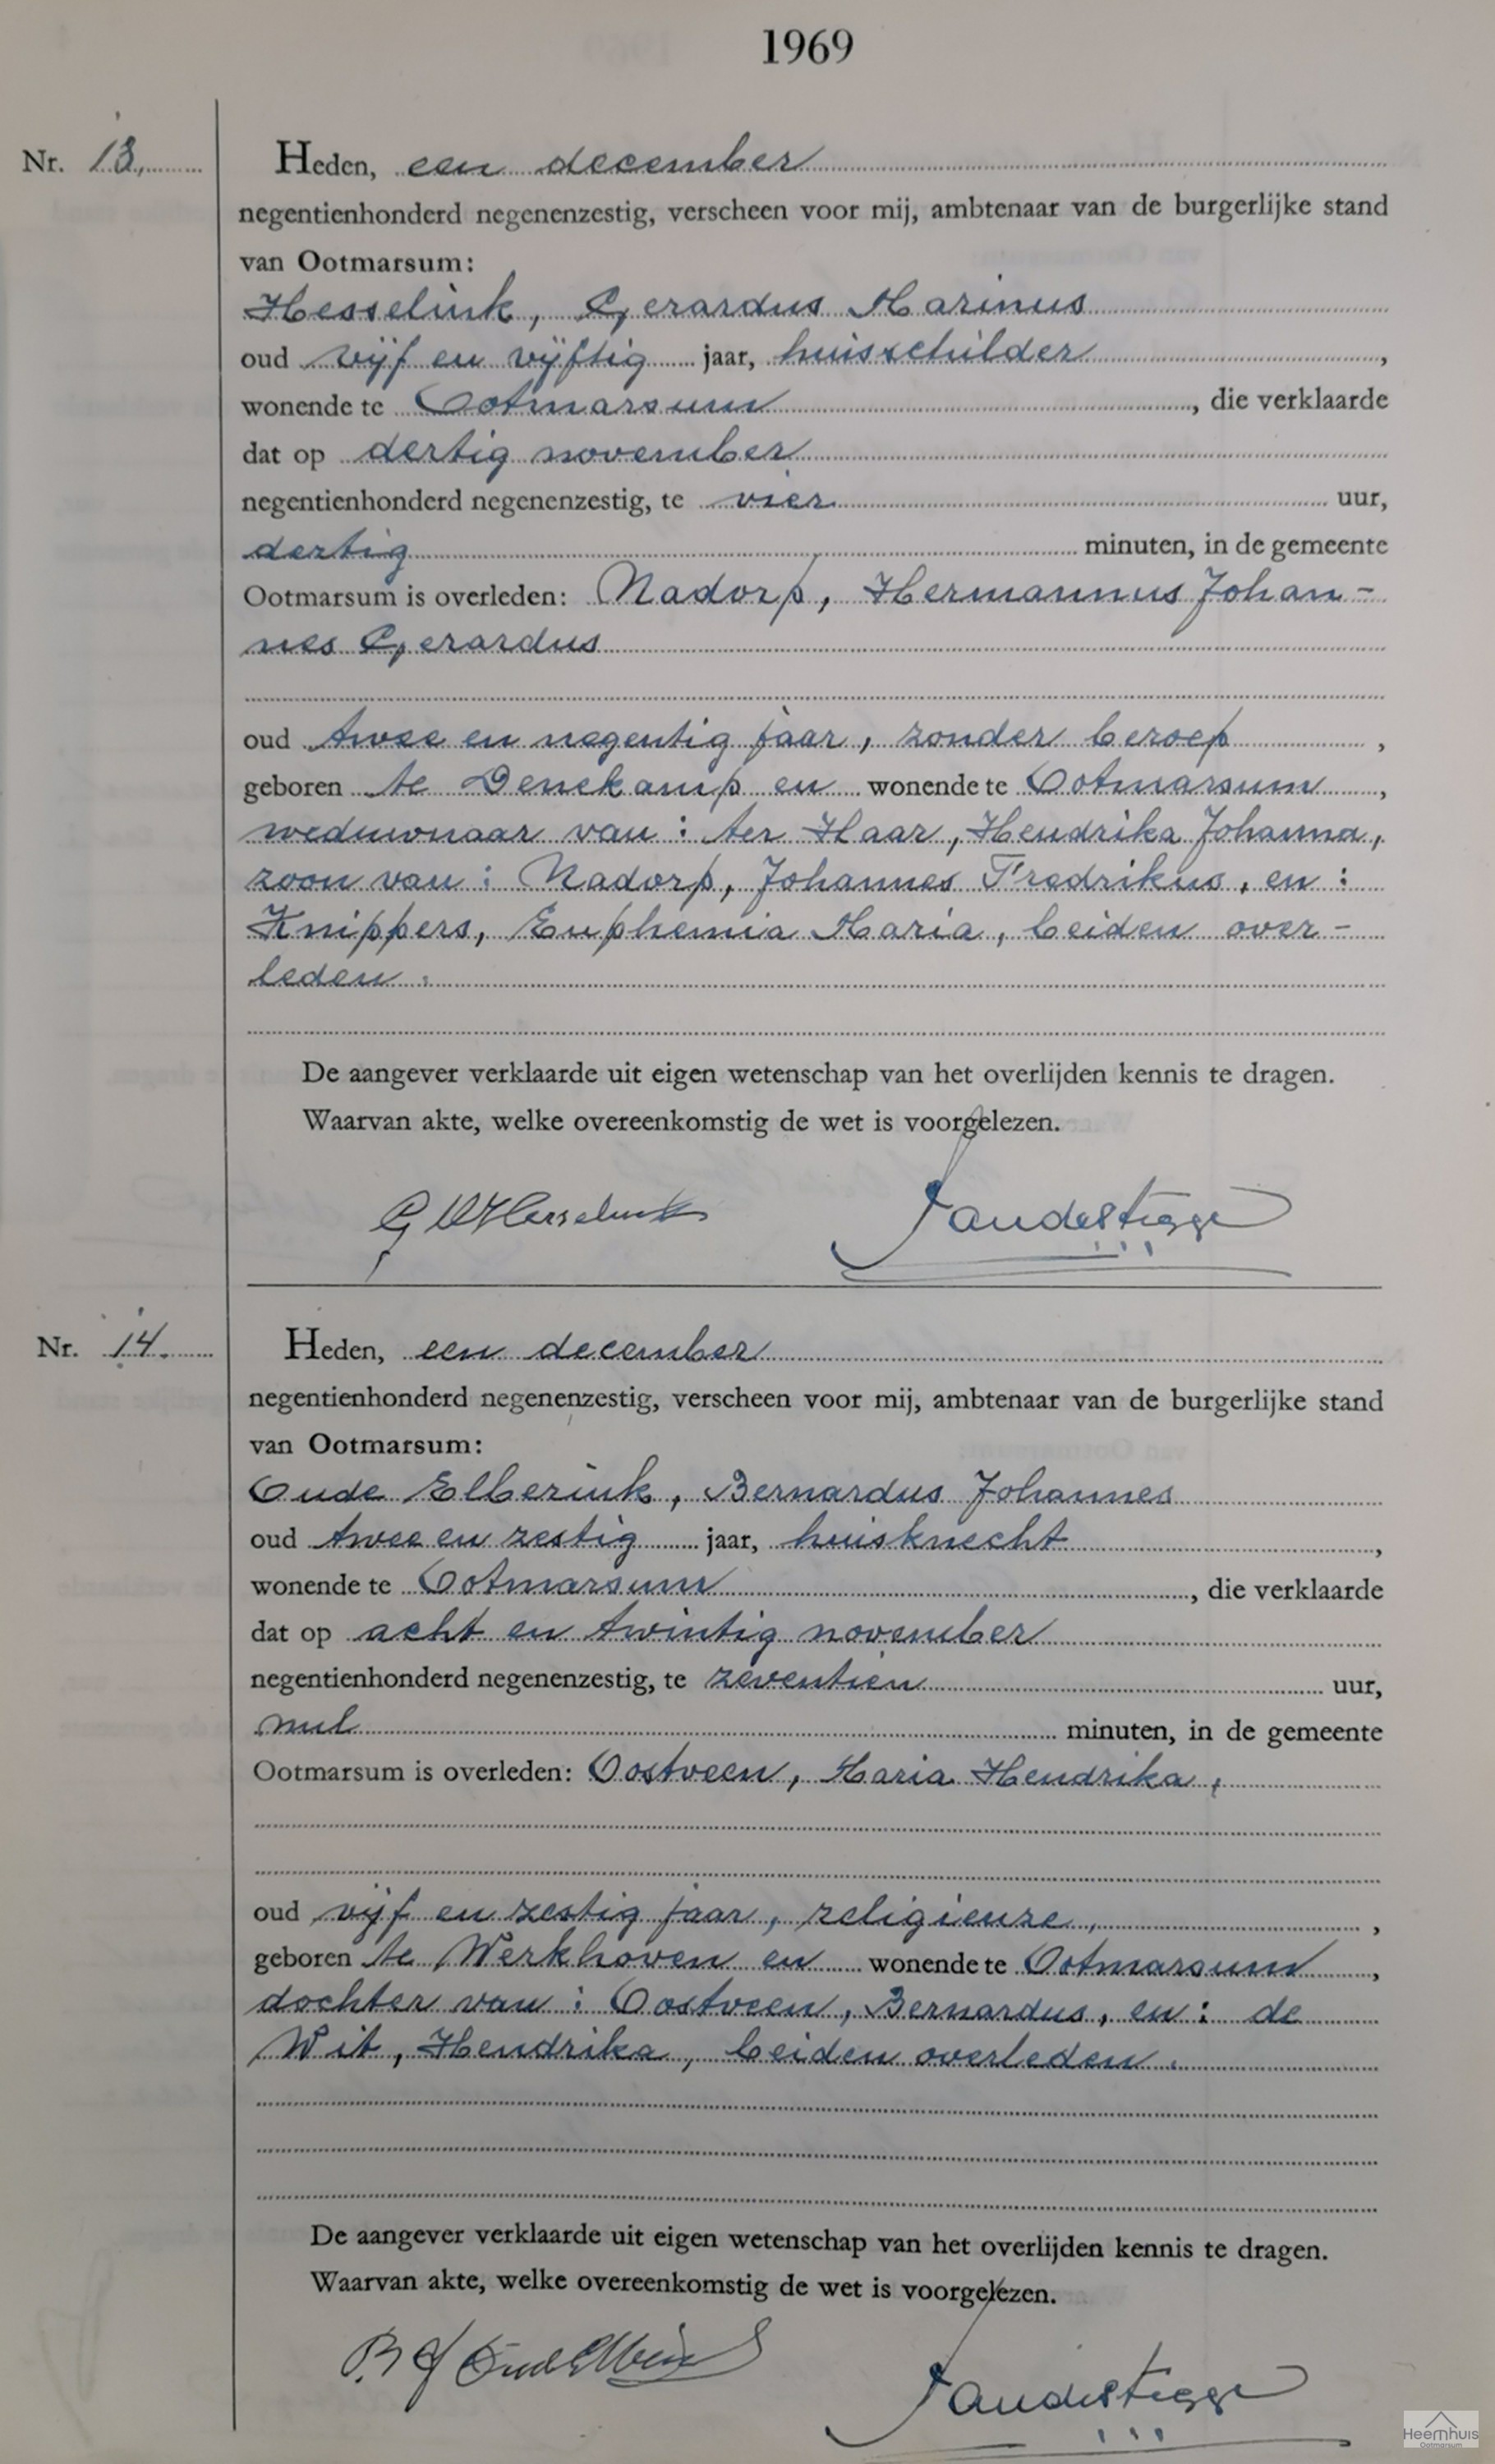 1969
Nr. 13.
Heden, een december
negentienhonderd negenenzestig, verscheen voor mij, ambtenaar van de burgerlijke stand
van Ootmarsum:
Hesselink, Gerardus Marinus
oud vijf en vijftig jaar, huisschilder,
wonende te Ootmarsum, die verklaarde
dat op dertig november
negentienhonderd negenenzestig, te vier uur,
dertig minuten, in de gemeente
Ootmarsum is overleden: Nadorp, Hermannus Johan-
nes Gerardus
oud twee en negentig jaar, zonder beroep,
geboren te Denekamp en wonende te Ootmarsum,
weduwnaar van: ter Haar, Hendrika Johanna,
zoon van: Nadorp, Johannes Fredrikus, en:
Knippers, Euphemia Maria, beiden over-
leden.
De aangever verklaarde uit eigen wetenschap van het overlijden kennis te dragen.
Waarvan akte, welke overeenkomstig de wet is voorgelezen.
G M Hesselink
Nr. 14.
Heden, een december
negentienhonderd negenenzestig, verscheen voor mij, ambtenaar van de burgerlijke stand
van Ootmarsum:
Oude Elberink, Bernardus Johannes
oud twee en zestig jaar, huisknecht,
wonende te Ootmarsum, die verklaarde
dat op acht en twintig november
negentienhonderd negenenzestig, te zeventien uur,
nul minuten, in de gemeente
Ootmarsum is overleden: Oostveen, Maria Hendrika,
oud vijf en zestig jaar, religieuze,,
geboren te Werkhoven en wonende te Ootmarsum,
dochter van: Oostveen, Bernardus, en: de
Wit, Hendrika, beiden overleden.
De aangever verklaarde uit eigen wetenschap van het overlijden kennis te dragen.
Waarvan akte, welke overeenkomstig de wet is voorgelezen.
Heemhuis
Ootmarsum